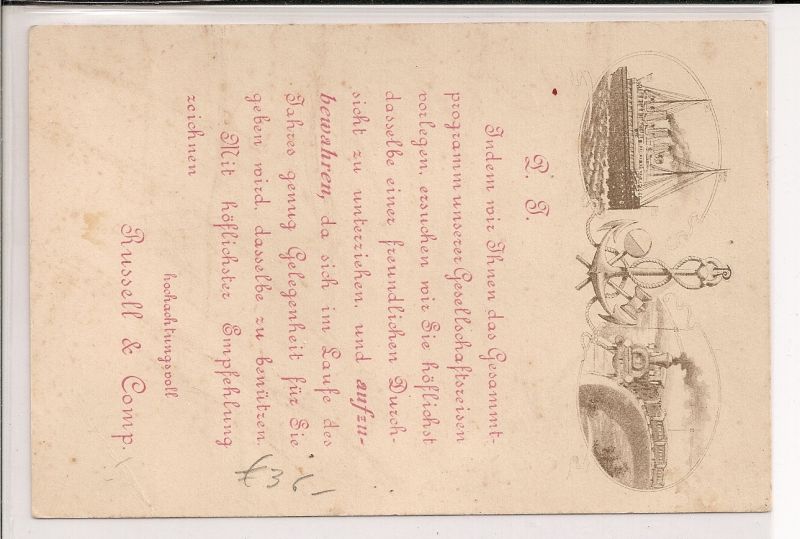 P. T.
Indem wir Ihnen das Gesammt-
programm unserer Gesellschaftsreisen
vorlegen, ersuchen wir Sie höflichst
dasselbe einer freundlichen Durch-
sicht zu unterziehen, und aufzu-
bewahren, da sich im Laufe des
Jahres genug Gelegenheit für Sie
geben wird, dasselbe zu benützen.
Mit höflichster Empfehlung
zeichnen
hochachtungsvoll
Russell & Comp.
£36-